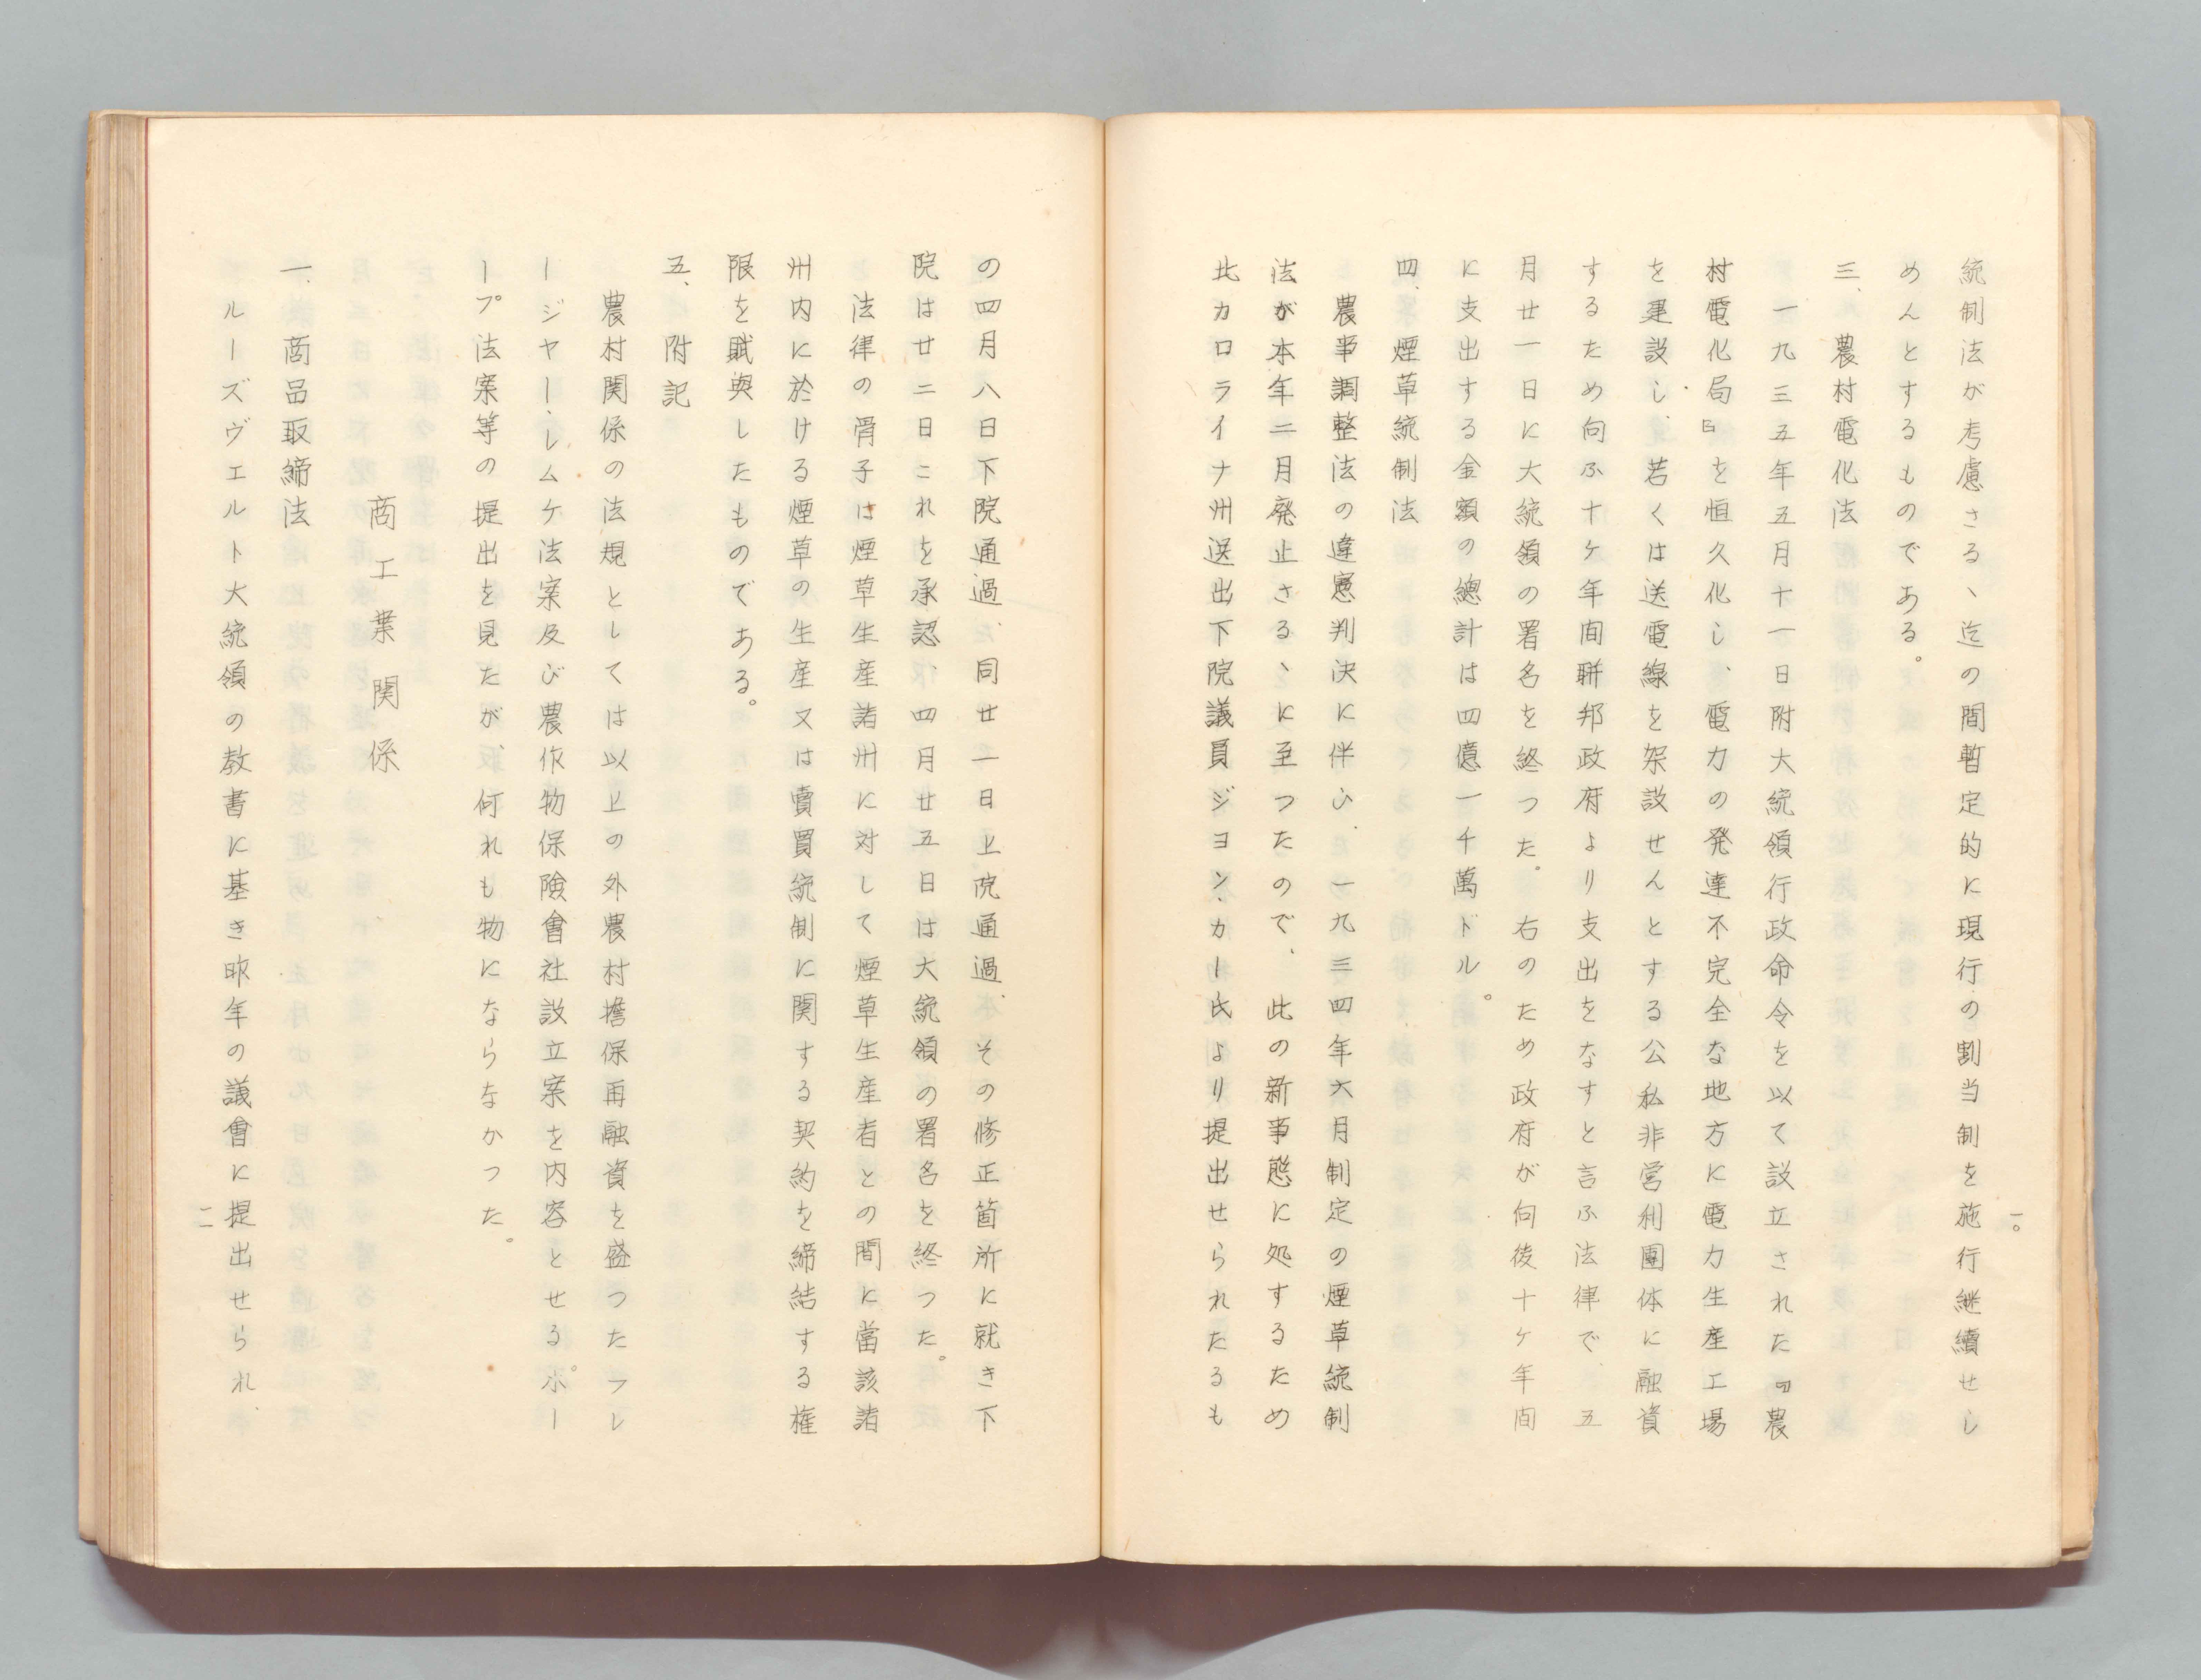 統制法が考慮さる、迄の間暫定的に現行の割当制を施行継續せし
めんとするものである。
三、農村電化法
一九三五年五月十一日附大統領行政命令を以て設立された『農
村電化局』を恒久化し、電力の発達不完全な地方に電力生産工場
を建設し、若くは送電線を架設せんとする公私非営利團体に融資
するため向ふ十ケ年間聯邦政府より支出をなすと言ふ法律で、五
月廿一日に大統領の署名を終つた。右のため政府が向後十ケ年間
に支出する金額の總計は四億一千萬ドル。
四、煙草統制法
農事調整法の違憲判決に伴ひ、一九三四年六月制定の煙草統制
法が本年二月廃止さる、に至つたので、此の新事態に処するため
北カロライナ州送出下院議員ジヨン、カー氏より提出せられたるも
一〇
の四月八日下院通過、同廿一日上院通過、その修正箇所に就き下
院は廿二日これを承認、四月廿五日は大統領の署名を終つた。
法律の骨子は煙草生産諸州に対して煙草生産者との間に當該諸
州内に於ける煙草の生産又は賣買統制に関する契約を締結する権
限を賦與したものである。
五、附記
農村関係の法規としては以上の外農村擔保再融資を盛つたフレ
ージヤー、レムケ法案及び農作物保險會社設立案を内容とせる。ホー
ープ法案等の提出を見たが、何れも物にならなかつた。
商工業関係
一、商品取締法
ルーズヴエルト大統領の教書に基き昨年の議會に提出せられ、
一一